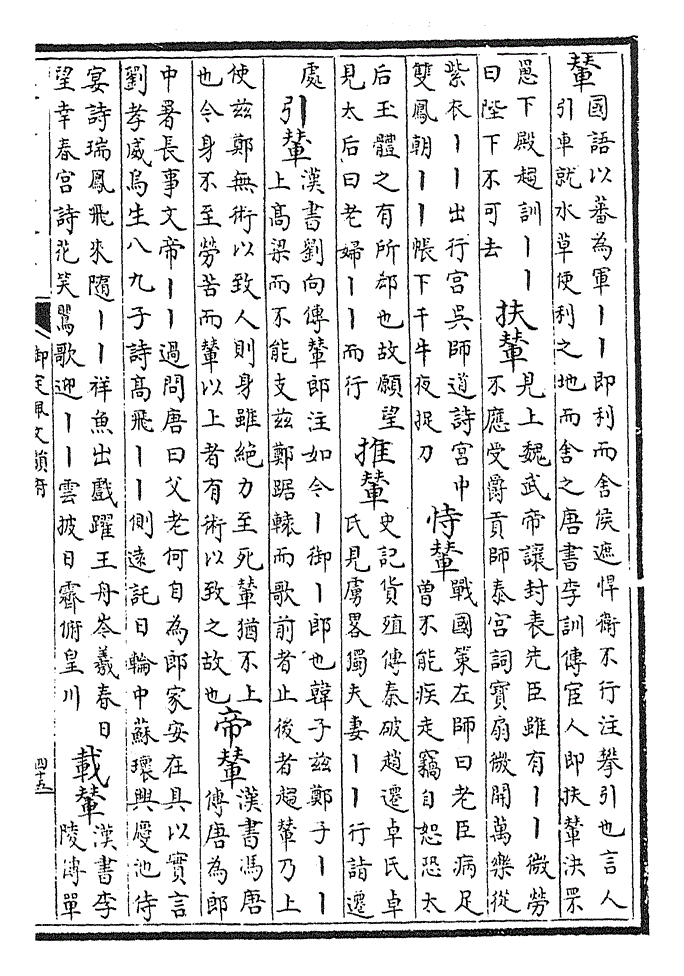 輦
國語以蕃為軍丨丨即利而舍侯遮悍衛不行注攀引也言人
引車就水草便利之地而舍之唐書李訓傳宦人即扶輦決罘
罳下殿趨訓丨丨
曰陛下不可去
扶輦
見上魏武帝讓封表先臣雖有丨丨微勞
不應受爵貢師泰宮詞寶扇微開萬樂從
紫衣丨丨出行宮吳師道詩宮中
雙鳳朝丨丨帳下千牛夜捉刀
恃輦
戰國策左師曰老臣病足
曾不能疾走竊自恕恐太
后玉體之有所郄也故願望
見太后曰老婦丨丨而行
推輦
史記貨殖傳秦破趙遷卓氏卓
氏見虜畧獨夫妻丨丨行詣遷
處
引輦
漢書劉向傳輦郎注如今丨御丨郎也韓子茲鄭子丨丨
上高梁而不能支茲鄭踞轅而歌前者止後者趨輦乃上
使茲鄭無術以致人則身雖絕力至死輦猶不上
也今身不至勞苦而輦以上者有術以致之故也
帝輦
漢書馮唐
傳唐為郎
中署長事文帝丨丨過問唐曰父老何自為郎家安在具以實言
劉孝威烏生八九子詩高飛丨丨側遠託日輪中蘇瓌興慶池侍
宴詩瑞鳳飛來隨丨丨祥魚出戲躍王舟岑羲春日
望幸春宮詩花笑鶯歌迎丨丨雲披日霽俯皇川
載輦
漢書李
陵傳單
御定佩文韻府
四十五